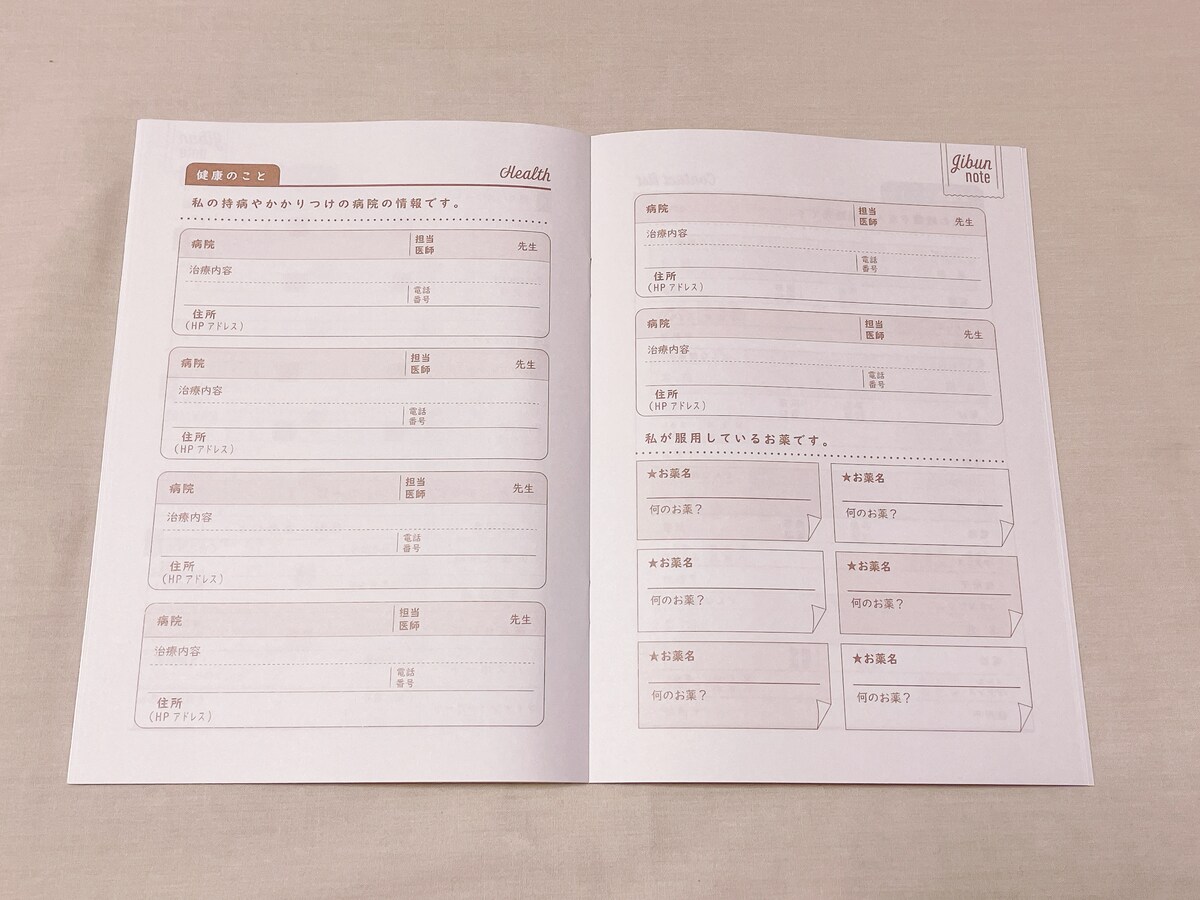 健康のこと
Health
私の持病やかかりつけの病院の情報です。
病院 担当医師 先生
治療内容
電話番号
住所
(HPアドレス)
病院 担当医師 先生
治療内容
電話番号
住所
(HPアドレス)
病院 担当医師 先生
治療内容
電話番号
住所
(HPアドレス)
病院 担当医師 先生
治療内容
電話番号
住所
(HPアドレス)
jibun
note
病院 担当医師 先生
治療内容
電話番号
住所
(HPアドレス)
病院 担当医師 先生
治療内容
電話番号
住所
(HPアドレス)
私が服用しているお薬です。
★お薬名 ★お薬名
何のお薬? 何のお薬?
★お薬名 ★お薬名
何のお薬? 何のお薬?
★お薬名 ★お薬名
何のお薬? 何のお薬?